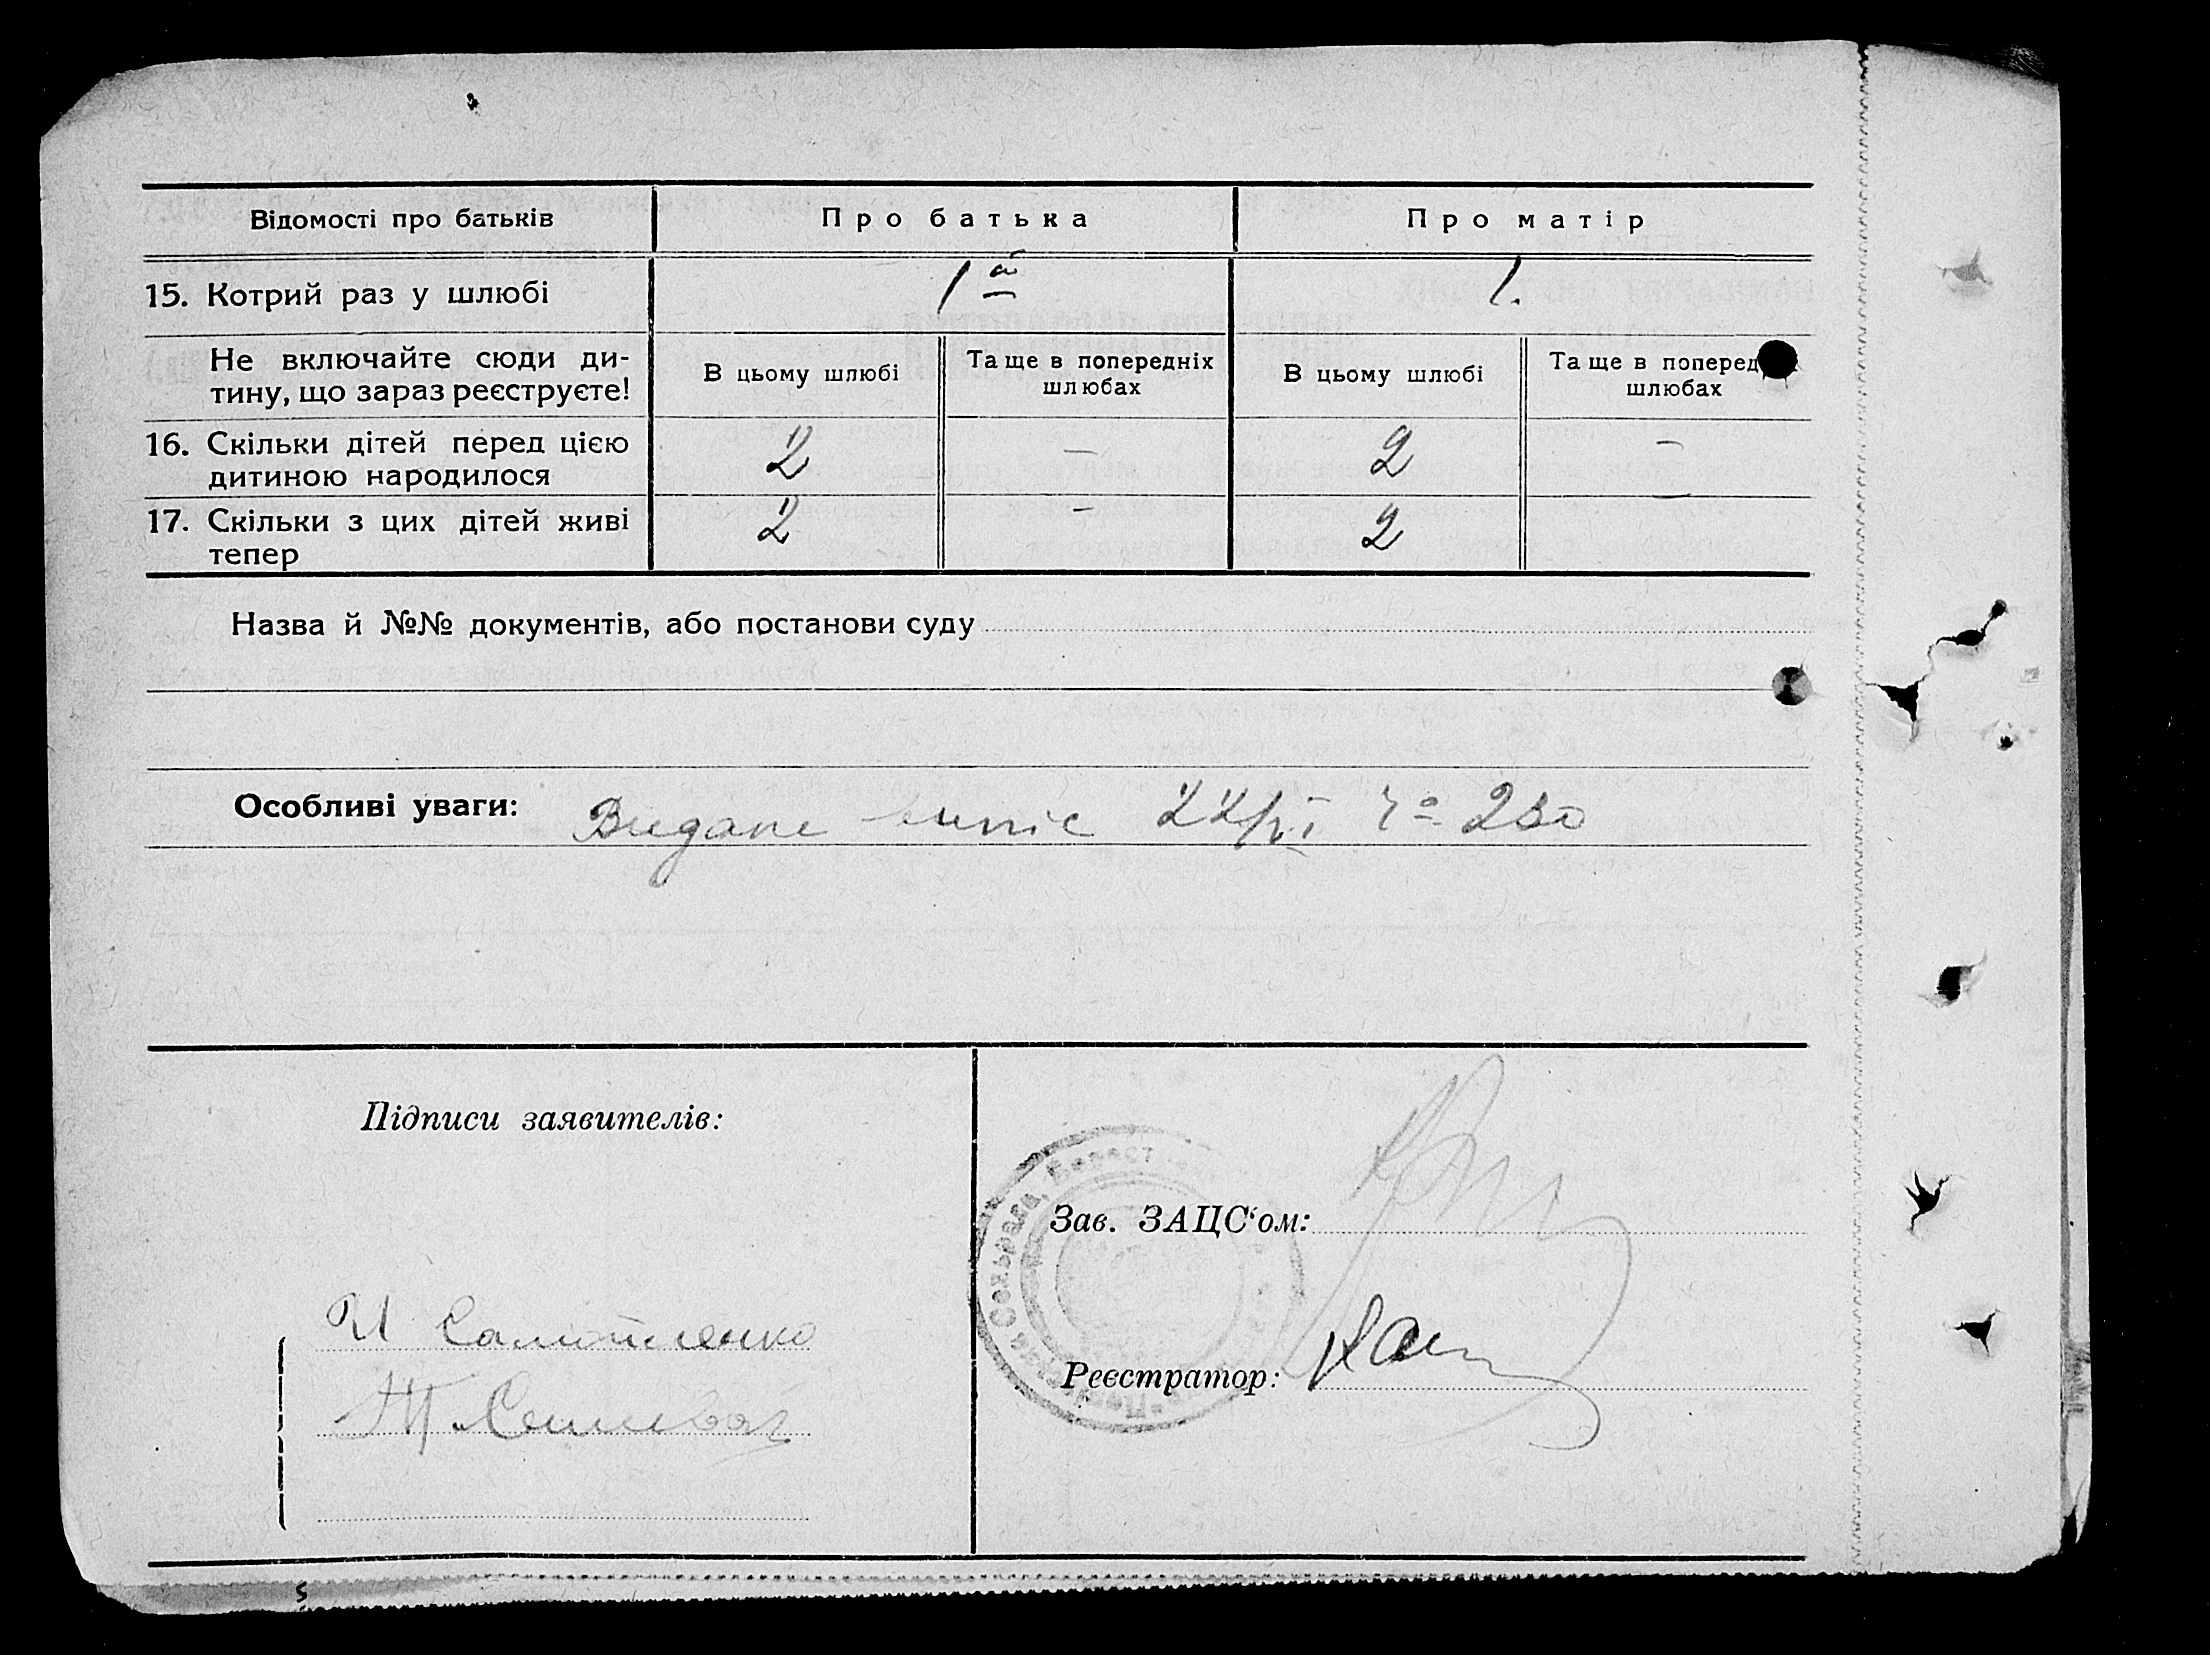 Відомості про батьків Про батька Про матір
15. Котрий раз у шлюбі 1й 1.
Не включайте сюди ди-
тину, що зараз реєструєте!
В цьому шлюбі
Та ще в попередніх
шлюбах
В цьому шлюбі
Та ще в поперед
шлюбах
16. Скільки дітей перед цією
дитиною народилося
2 – 2 –
17. Скільки з цих дітей живі
тепер
2 – 2
Назва й №№ документів, або постанови суду
Особливі уваги: Видане
Підписи заявителів:
Зав. ЗАЦС‘ом:
Реєстратор: